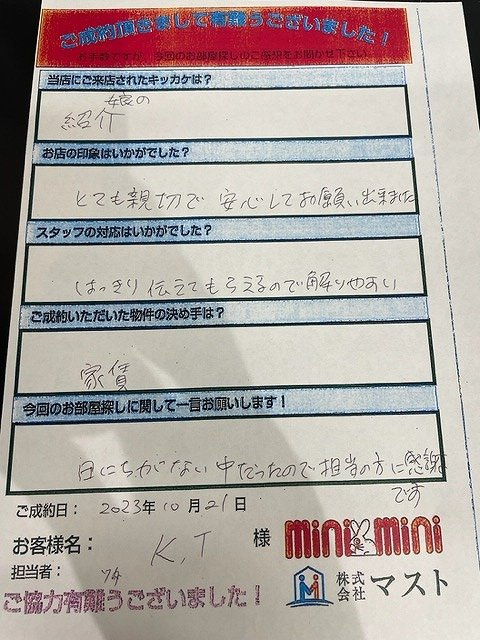 ご成約頂きまして有難うございました！
お手数ですが、今回のお部屋探しのご感想をお聞かせ下さい。
当店にご来店されたキッカケは？
娘の
紹介
お店の印象はいかがでした？
とても親切で 安心してお願い出来ました
スタッフの対応はいかがでした？
はっきり伝えてもらえるので解りやすい
ご成約いただいた物件の決め手は？
家賃
今回のお部屋探しに関して一言お願いします！
日にちがない中だったので担当の方に感謝
です
ご成約日： 2023年 10月 21日
お客様名： K.T 様
mini mini
担当者：
株式会社 マスト
ご協力有難うございました！